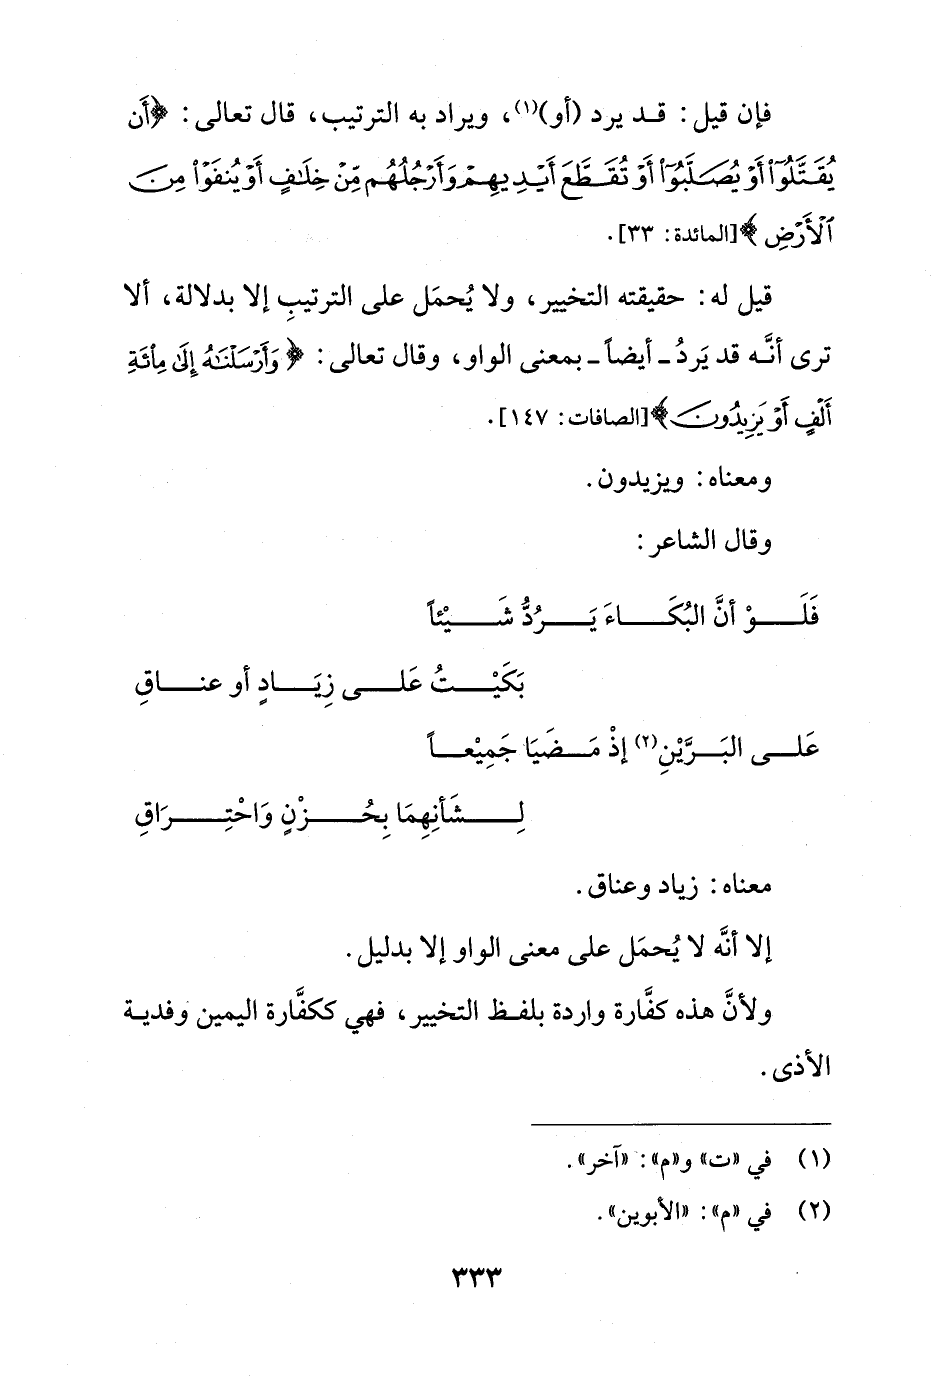 فإن قيل: قد يرد (أو)(١)، ويراد به الترتيب، قال تعالى: ﴿أَن
يُقَتَّلُوٓا۟ أَوْ يُصَلَّبُوٓا۟ أَوْ تُقَطَّعَ أَيْدِيهِمْ وَأَرْجُلُهُم مِّنْ خِلَٰفٍ أَوْ يُنفَوْا۟ مِنَ
ٱلْأَرْضِ﴾ [المائدة: ٣٣].
قيل له: حقيقته التخيير، ولا يُحمَل على الترتيبِ إلا بدلالة، ألا
ترى أنَّه قد يَردُ ـ أيضاً ـ بمعنى الواو، وقال تعالى: ﴿وَأَرْسَلْنَٰهُ إِلَىٰ مِا۟ئَةِ
أَلْفٍ أَوْ يَزِيدُونَ﴾ [الصافات: ١٤٧].
ومعناه: ويزيدون.
وقال الشاعر:
فَلَـوْ أنَّ البُكَـاءَ يَـرُدُّ شَـيْئاً
بَكَيْـتُ عَلـى زِيَـادٍ أو عنـاقِ
عَلـى البَـرَّيْنِ(٢) إذْ مَـضَيَا جَمِيْعـاً
لِـشَأنِهِمَا بِحُـزْنٍ وَاحْتِـرَاقِ
معناه: زياد وعناق.
إلا أنَّه لا يُحمَل على معنى الواو إلا بدليل.
ولأنَّ هذه كفَّارة واردة بلفظ التخيير، فهي ككفَّارة اليمين وفدية
الأذى.
(١) في «ت» و«م»: «آخر».
(٢) في «م»: «الأبوين».
٣٣٣